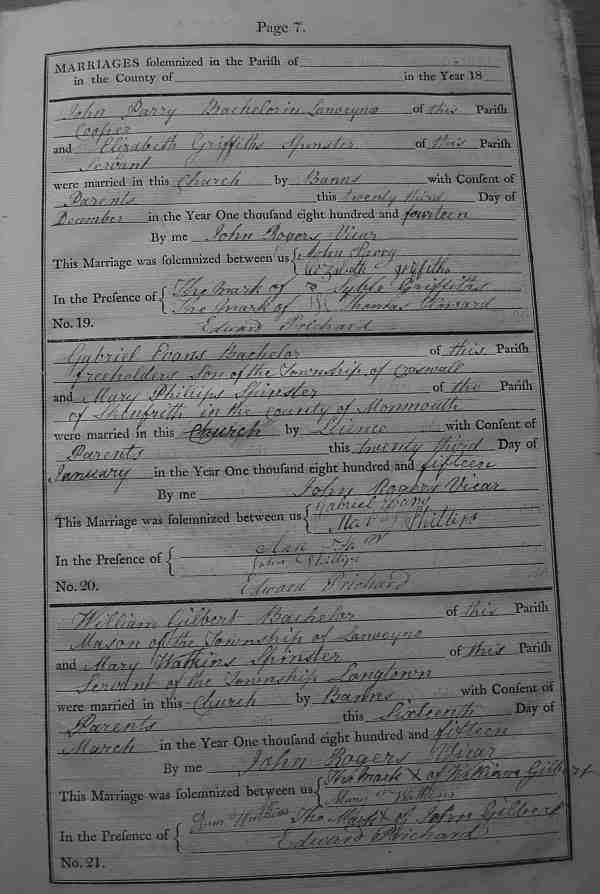 Page 7.
MARRIAGES solemnized in the Parish of
in the County of in the Year 18
John Parry Bachelor in Lanveyno of this Parish
Cooper
and Elizabeth Griffiths Spinster of this Parish
Servant
were married in this Church by Banns with Consent of
Parents this twenty third Day of
December in the Year One thousand eight hundred and fourteen
By me John Rogers Vicar
This Marriage was solemnized between us John Parry
Elizabeth Griffiths
In the Presence of The Mark of Syble Griffiths
The Mark of Thomas Howard
No. 19. Edward Prichard
Gabriel Evans Bachelor of this Parish
freeholders Son of the Township of Craswall
and Mary Phillips Spinster of the Parish
of Skenfrith in the county of Monmouth
were married in this Church by Licence with Consent of
Parents this twenty third Day of
January in the Year One thousand eight hundred and fifteen
By me John Rogers Vicar
This Marriage was solemnized between us Gabriel Evans
Mary Phillips
In the Presence of Ann
John Phillips
No. 20. Edward Prichard
William Gilbert Bachelor of this Parish
Mason of the Township of Lanveyno
and Mary Watkins Spinster of this Parish
Servant of the Township Longtown
were married in this Church by Banns with Consent of
Parents this Sixteenth Day of
March in the Year One thousand eight hundred and fifteen
By me John Rogers Vicar
This Marriage was solemnized between us The Mark X of William Gilbert
Mary Watkins
In the Presence of Watkins The Mark X of John Gilbert
Edward Prichard
No. 21.